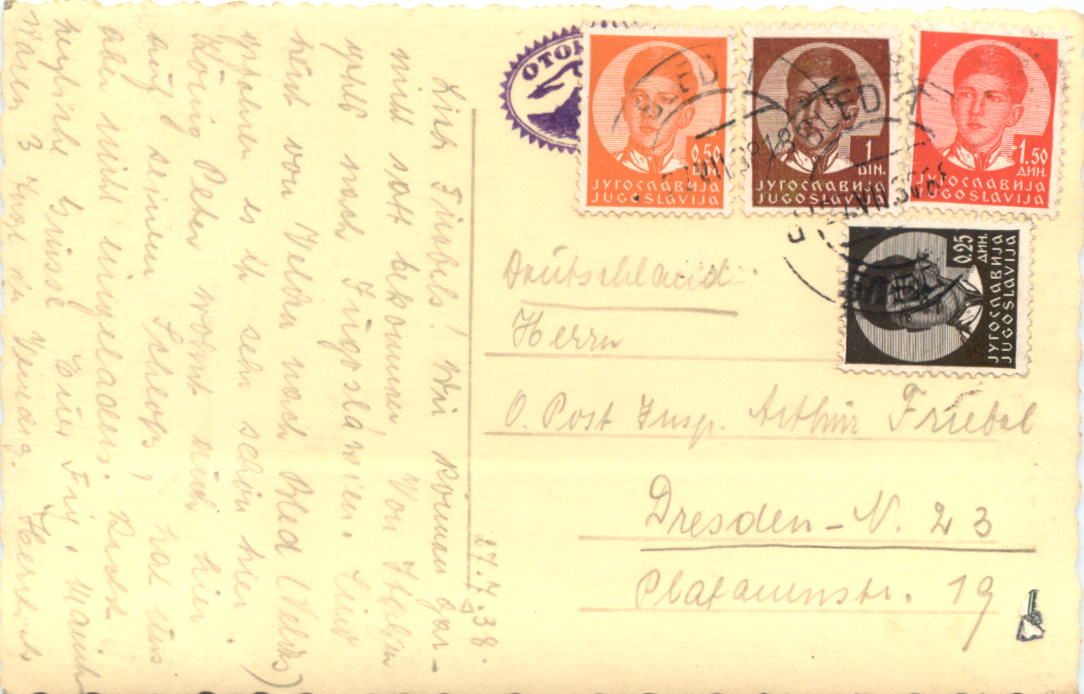 27.7.38.
Liebe Friebels! Wir können gar-
nicht satt bekommen! Von Italien
jetzt nach Jugoslawien. Sind
heut von Velden nach Bled (Veldes)
gefahren es ist sehr schön hier.
König Peter wohnt auch hier
auf seinem Schloß, hat uns
aber nicht eingeladen. Recht
herzliche Grüsse Eure
waren 3 Tage in Venedig.
OTOK
BLED
BLED
0,50
ДИН.
ЈУГОСЛАВИЈА
JUGOSLAVIJA
1
DIN.
ЈУГОСЛАВИЈА
JUGOSLAVIJA
1.50
ДИН.
ЈУГОСЛАВИЈА
JUGOSLAVIJA
0,25
ДИН.
ЈУГОСЛАВИЈА
JUGOSLAVIJA
Deutschland.
Herrn
O. Post Insp. Arthur Friebel
Dresden-N. 23
Platanenstr. 19